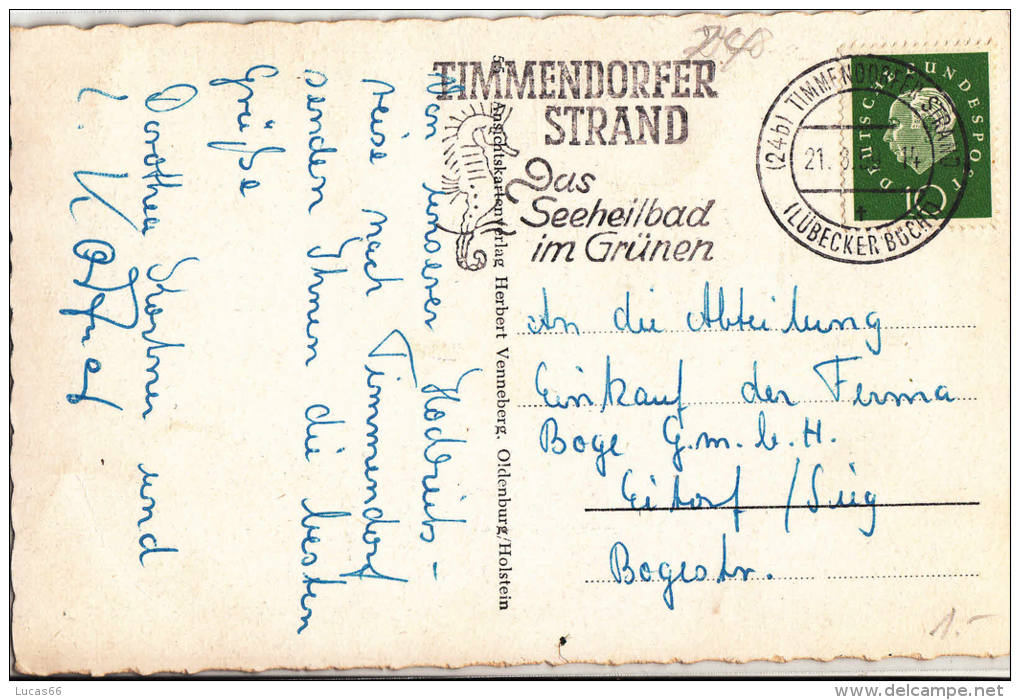 Von unserer Hochzeits-
reise nach Timmendorf
senden Ihnen die besten
Grüße
Dorothea Körtner und
TIMMENDORFER
STRAND
Das
Seeheilbad
im Grünen
(24b) TIMMENDORFER STRAND
21. 8.59. 14
(LÜBECKER BUCHT)
DEUTSCHE BUNDESPOST
10
Ansichtskartenverlag Herbert Venneberg, Oldenburg/Holstein
An die Abteilung
Einkauf der Ferma
Boge G.m.b.H.
Eitorf / Sieg
Bogestr.
1.-
Lucas66
www.delcampe.net